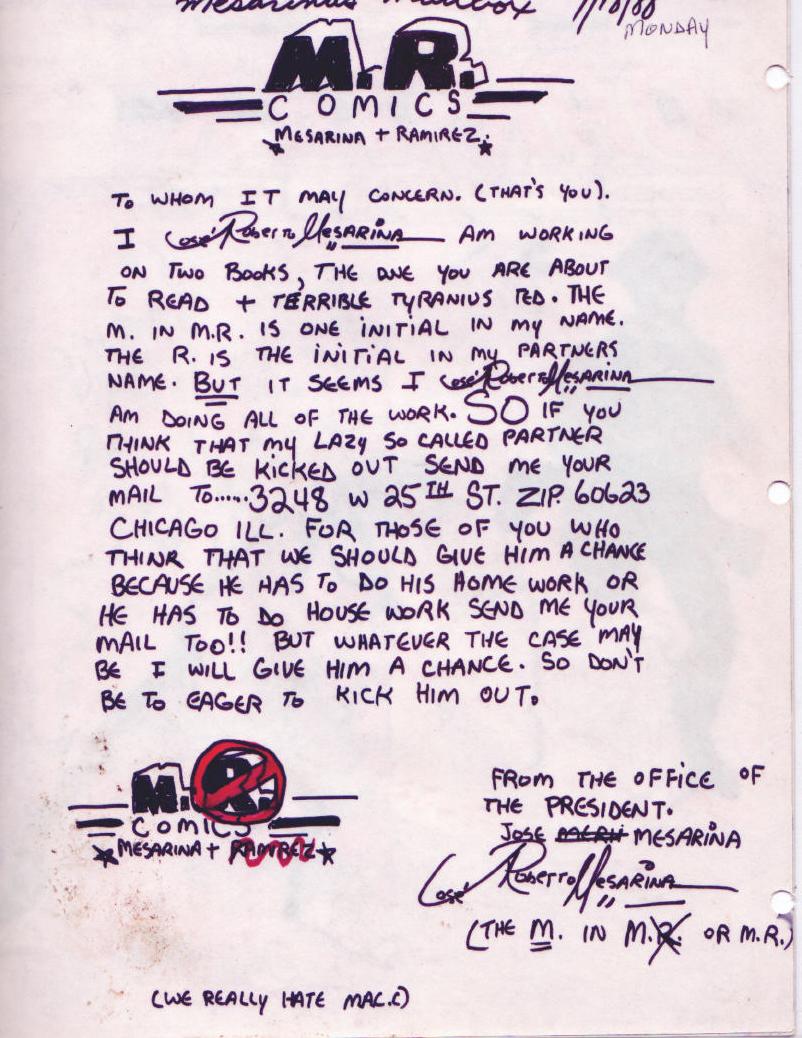 Mesarinas Mailbox 7/18/88
MONDAY
M.R.
COMICS
MESARINA + RAMIREZ.
TO WHOM IT MAY CONCERN. (THAT'S YOU).
I José Roberto MESARINA AM WORKING
ON TWO BOOKS, THE ONE YOU ARE ABOUT
TO READ + TERRIBLE TYRANIUS TED. THE
M. IN M.R. IS ONE INITIAL IN MY NAME.
THE R. IS THE INITIAL IN MY PARTNERS
NAME. BUT IT SEEMS I José Roberto MESARINA
AM DOING ALL OF THE WORK. SO IF YOU
THINK THAT MY LAZY SO CALLED PARTNER
SHOULD BE KICKED OUT SEND ME YOUR
MAIL TO......3248 W 25TH ST. ZIP. 60623
CHICAGO ILL. FOR THOSE OF YOU WHO
THINK THAT WE SHOULD GIVE HIM A CHANCE
BECAUSE HE HAS TO DO HIS HOME WORK OR
HE HAS TO DO HOUSE WORK SEND ME YOUR
MAIL TOO!! BUT WHATEVER THE CASE MAY
BE I WILL GIVE HIM A CHANCE. SO DON'T
BE TO EAGER TO KICK HIM OUT.
M.R.
COMICS
MESARINA + RAMIREZ
FROM THE OFFICE OF
THE PRESIDENT.
JOSE MESARINA
José Roberto MESARINA
(THE M. IN M.R. OR M.R.)
(WE REALLY HATE MAC.C)